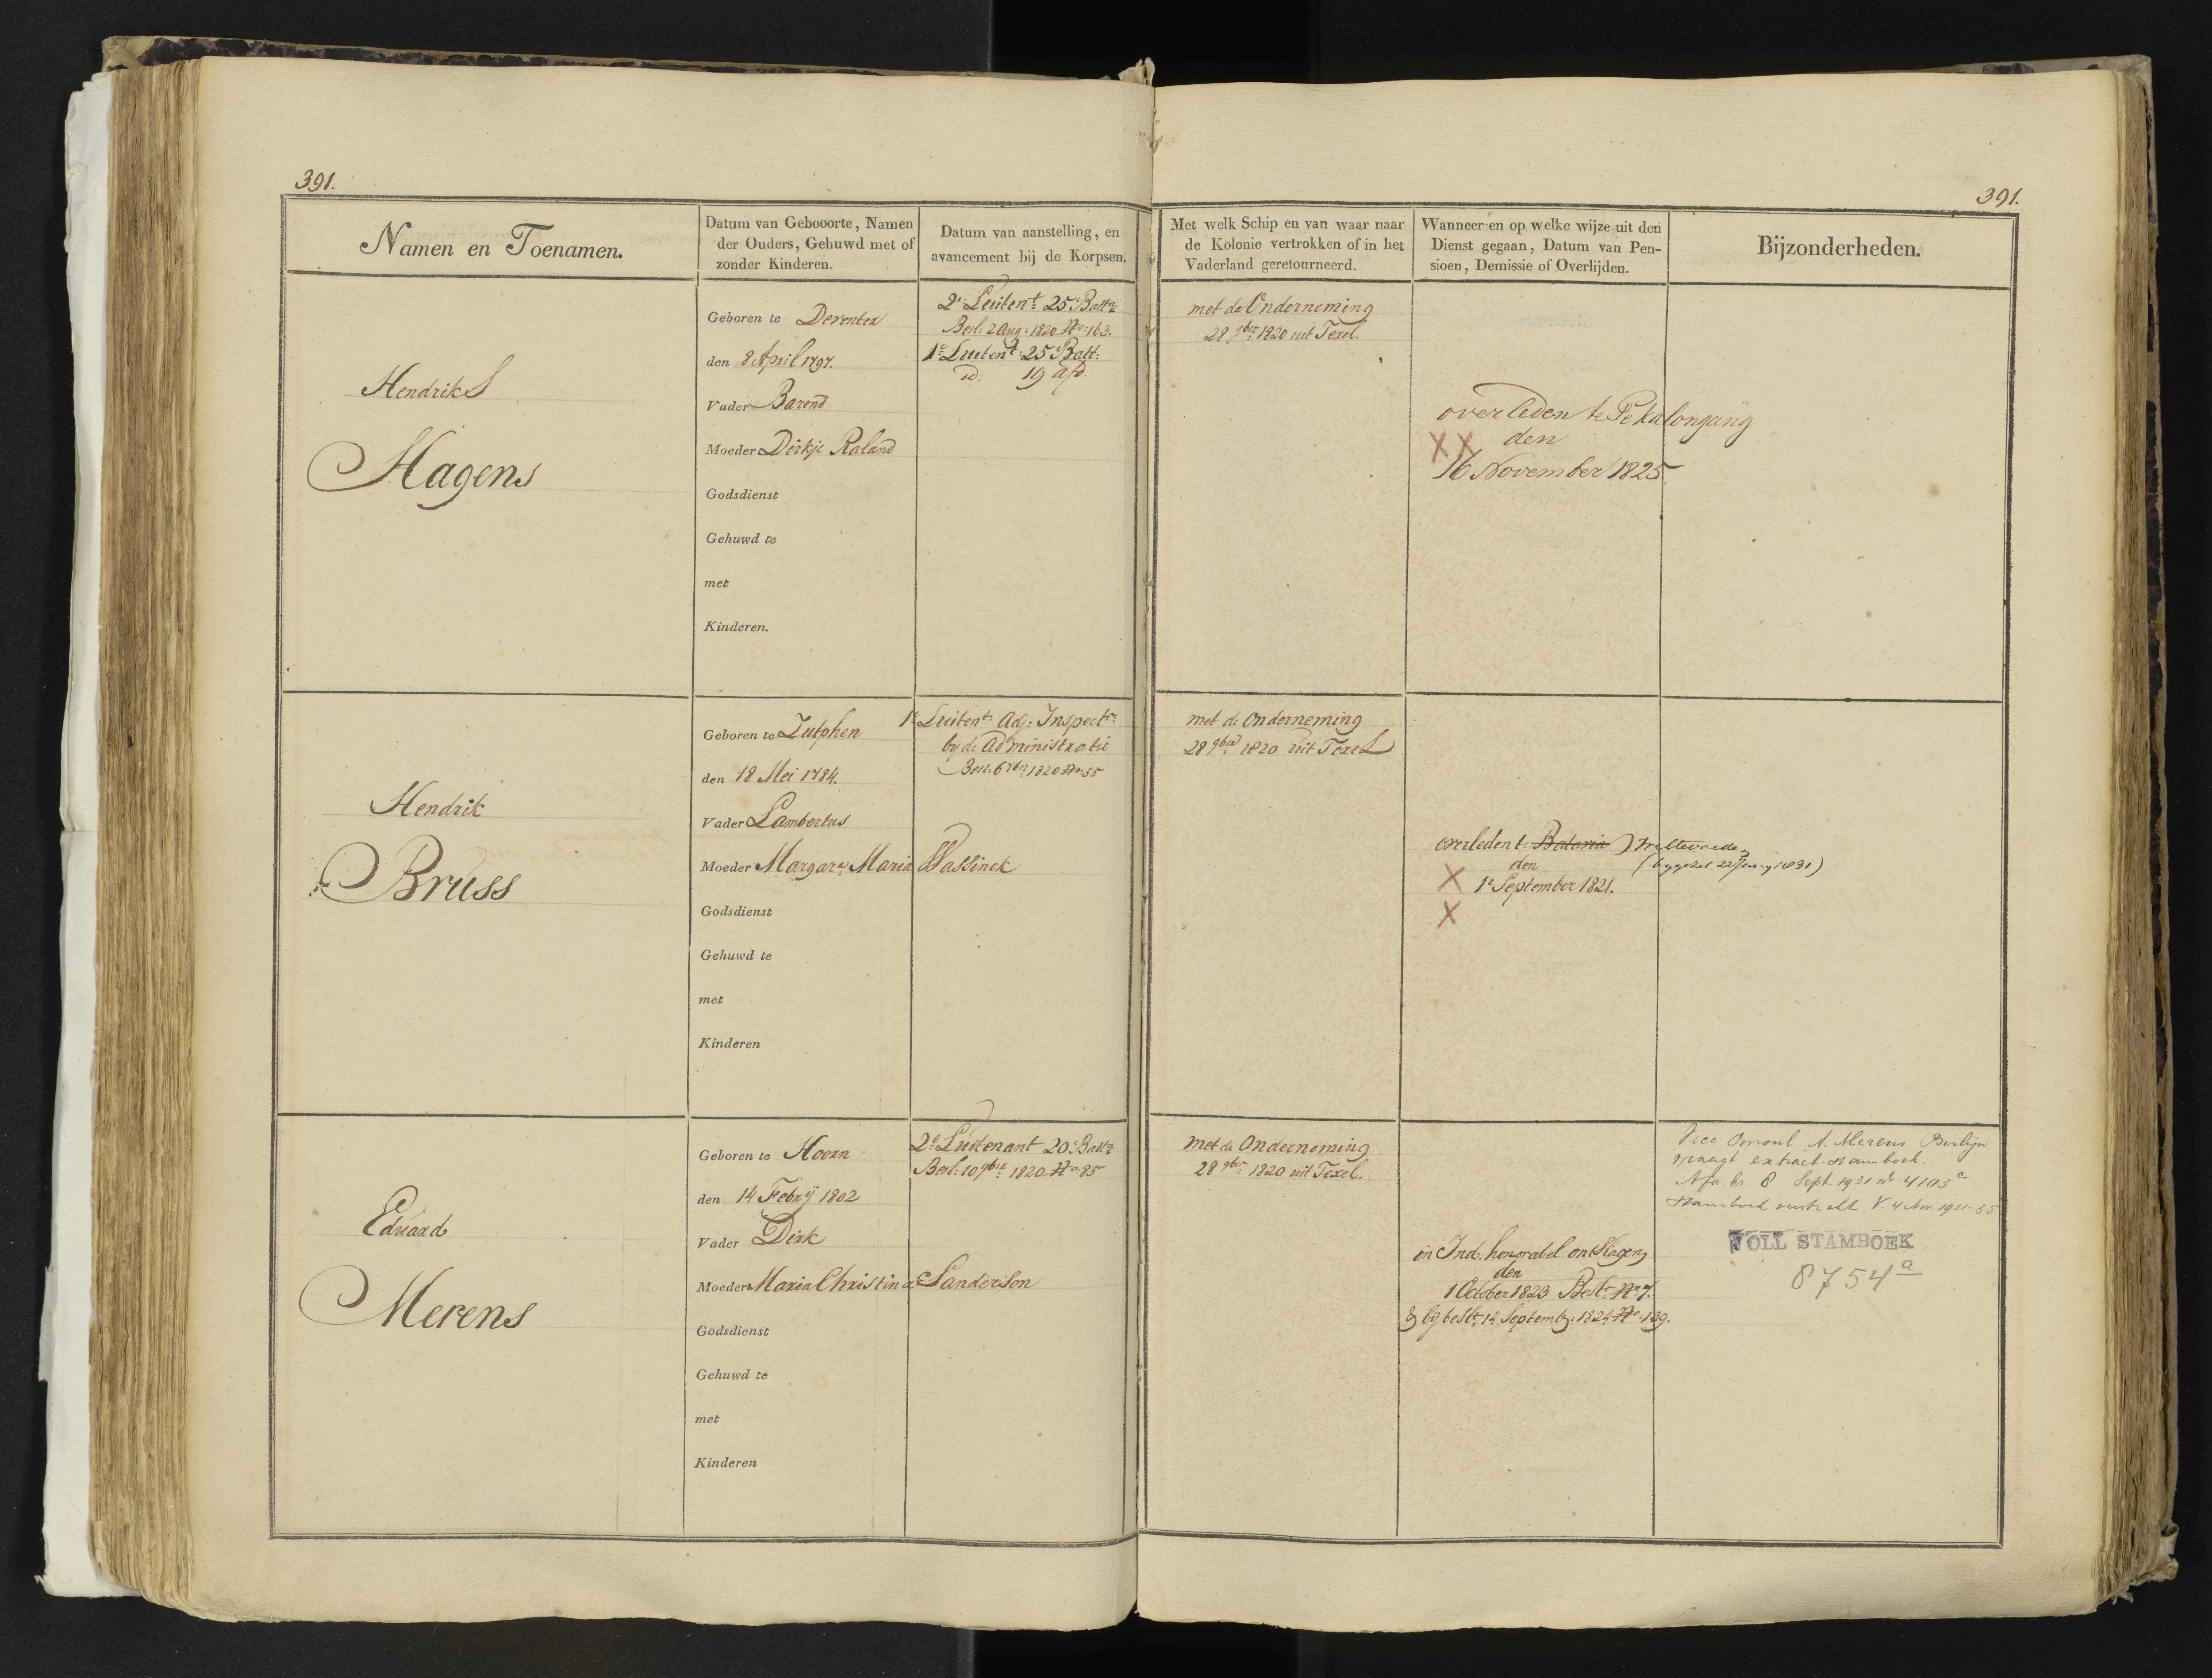 391.
391.
Namen en Toenamen.
Datum van Gebooorte, Namen
der Ouders, Gehuwd met of
zonder Kinderen.
Datum van aanstelling, en
avancement bij de Korpsen.
Met welk Schip en van waar naar
de Kolonie vertrokken of in het
Vaderland geretourneerd.
Wanneer en op welke wijze uit den
Dienst gegaan, Datum van Pen-
sioen, Demissie of Overlijden.
Bijzonderheden.
Hendrik
Hagens
Geboren te Deventer
den 8 April 1797.
Vader Barend
Moeder Dirkje Raland
Godsdienst
Gehuwd te
met
Kinderen.
2e Luitent 25e Battn
Besl: 2 Aug: 1820 No: 163.
1e Luitent: 25e Batt:
id: 19 afd.
met de Onderneming
28 9ber 1820 uit Texel.
overleden te Pekalongang
XX den
16 November 1825.
Hendrik
Bruss
Geboren te Zutphen
den 18 Mei 1784.
Vader Lambertus
Moeder Margara Maria Wassinck
Godsdienst
Gehuwd te
met
Kinderen
1e Luitent: Adj: Inspectr:
by de Administratie
Besl: 6 7ber 1820 No: 55
met de Onderneming
28 9ber 1820 uit Texel
overleden te Batavia) Weltevreden
den
X 1e September 1821.
X
Eduard
Merens
Geboren te Hoorn
den 14 Febrij 1802
Vader Dirk
Moeder Maria Christina Sanderson
Godsdienst
Gehuwd te
met
Kinderen
2e Luitenant 20e Battn
Besl: 10 9ber 1820 No: 85
met de Onderneming
28 9ber 1820 uit Texel.
in Ind: honorabel ontslagen
den
1 October 1823 Beslt No 7.
& bij beslt 14 Septemb: 1824 No 139.
Vice Consul A. Merens Berlijn
vraagt extract-stamboek.
Afd. br. 8 Sept. 1931 no 4103 c
Stamboek verstrekt. V. 4 Nov. 1931-35
VOLL STAMBOEK
8754 a